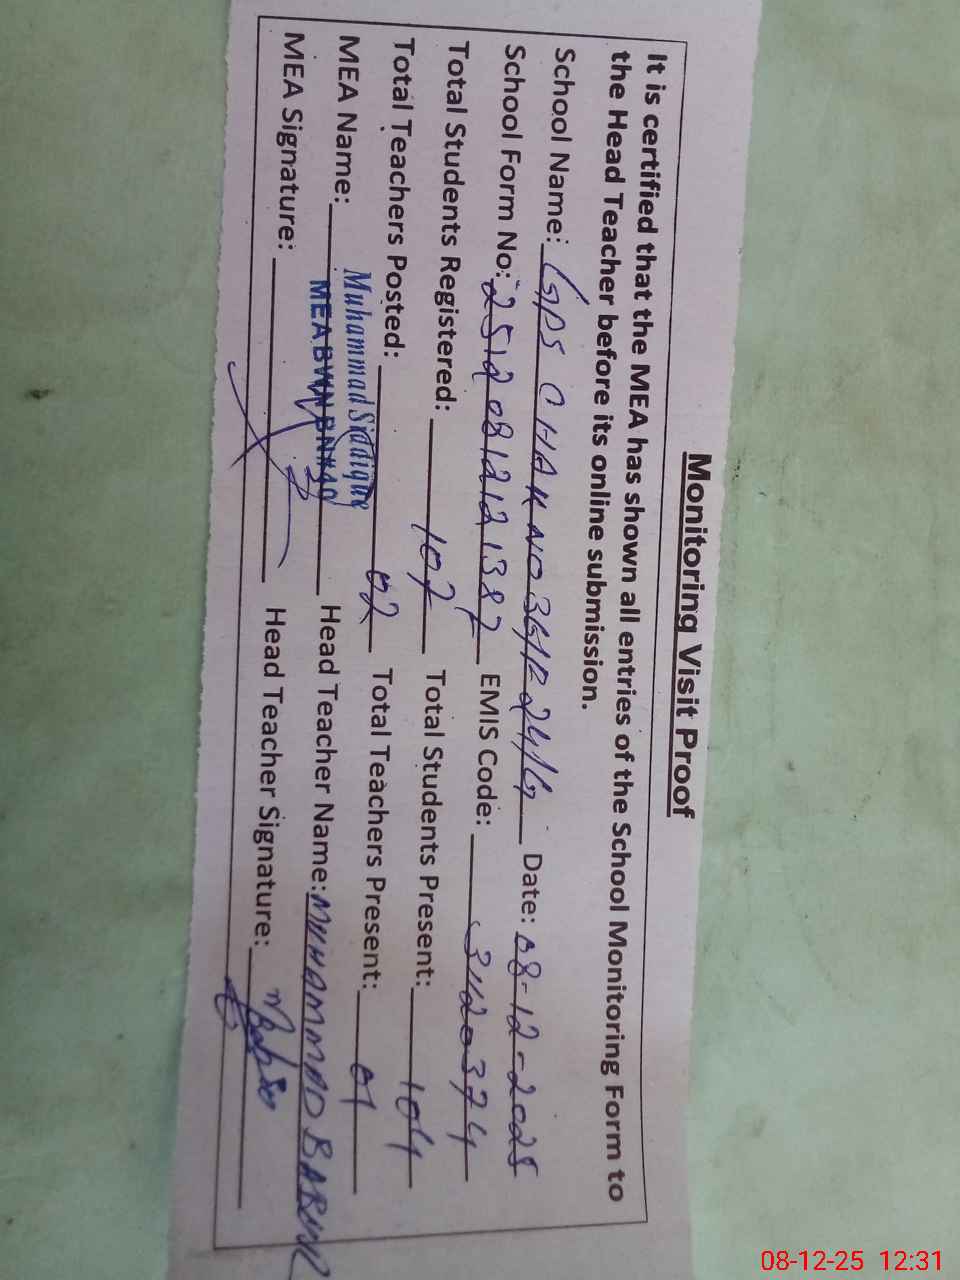 Monitoring Visit Proof
It is certified that the MEA has shown all entries of the School Monitoring Form to
the Head Teacher before its online submission.
School Name: GPS CHAK NO 36/R 24/G Date: 08-12-2025
School Form No: 25120812121387 EMIS Code: 31120374
Total Students Registered: 107 Total Students Present: 104
Total Teachers Posted: 02 Total Teachers Present: 01
MEA Name: Muhammad Siddique Head Teacher Name: MUHAMMAD
MEA BWN BN#40
MEA Signature: Head Teacher Signature:
08-12-25 12:31